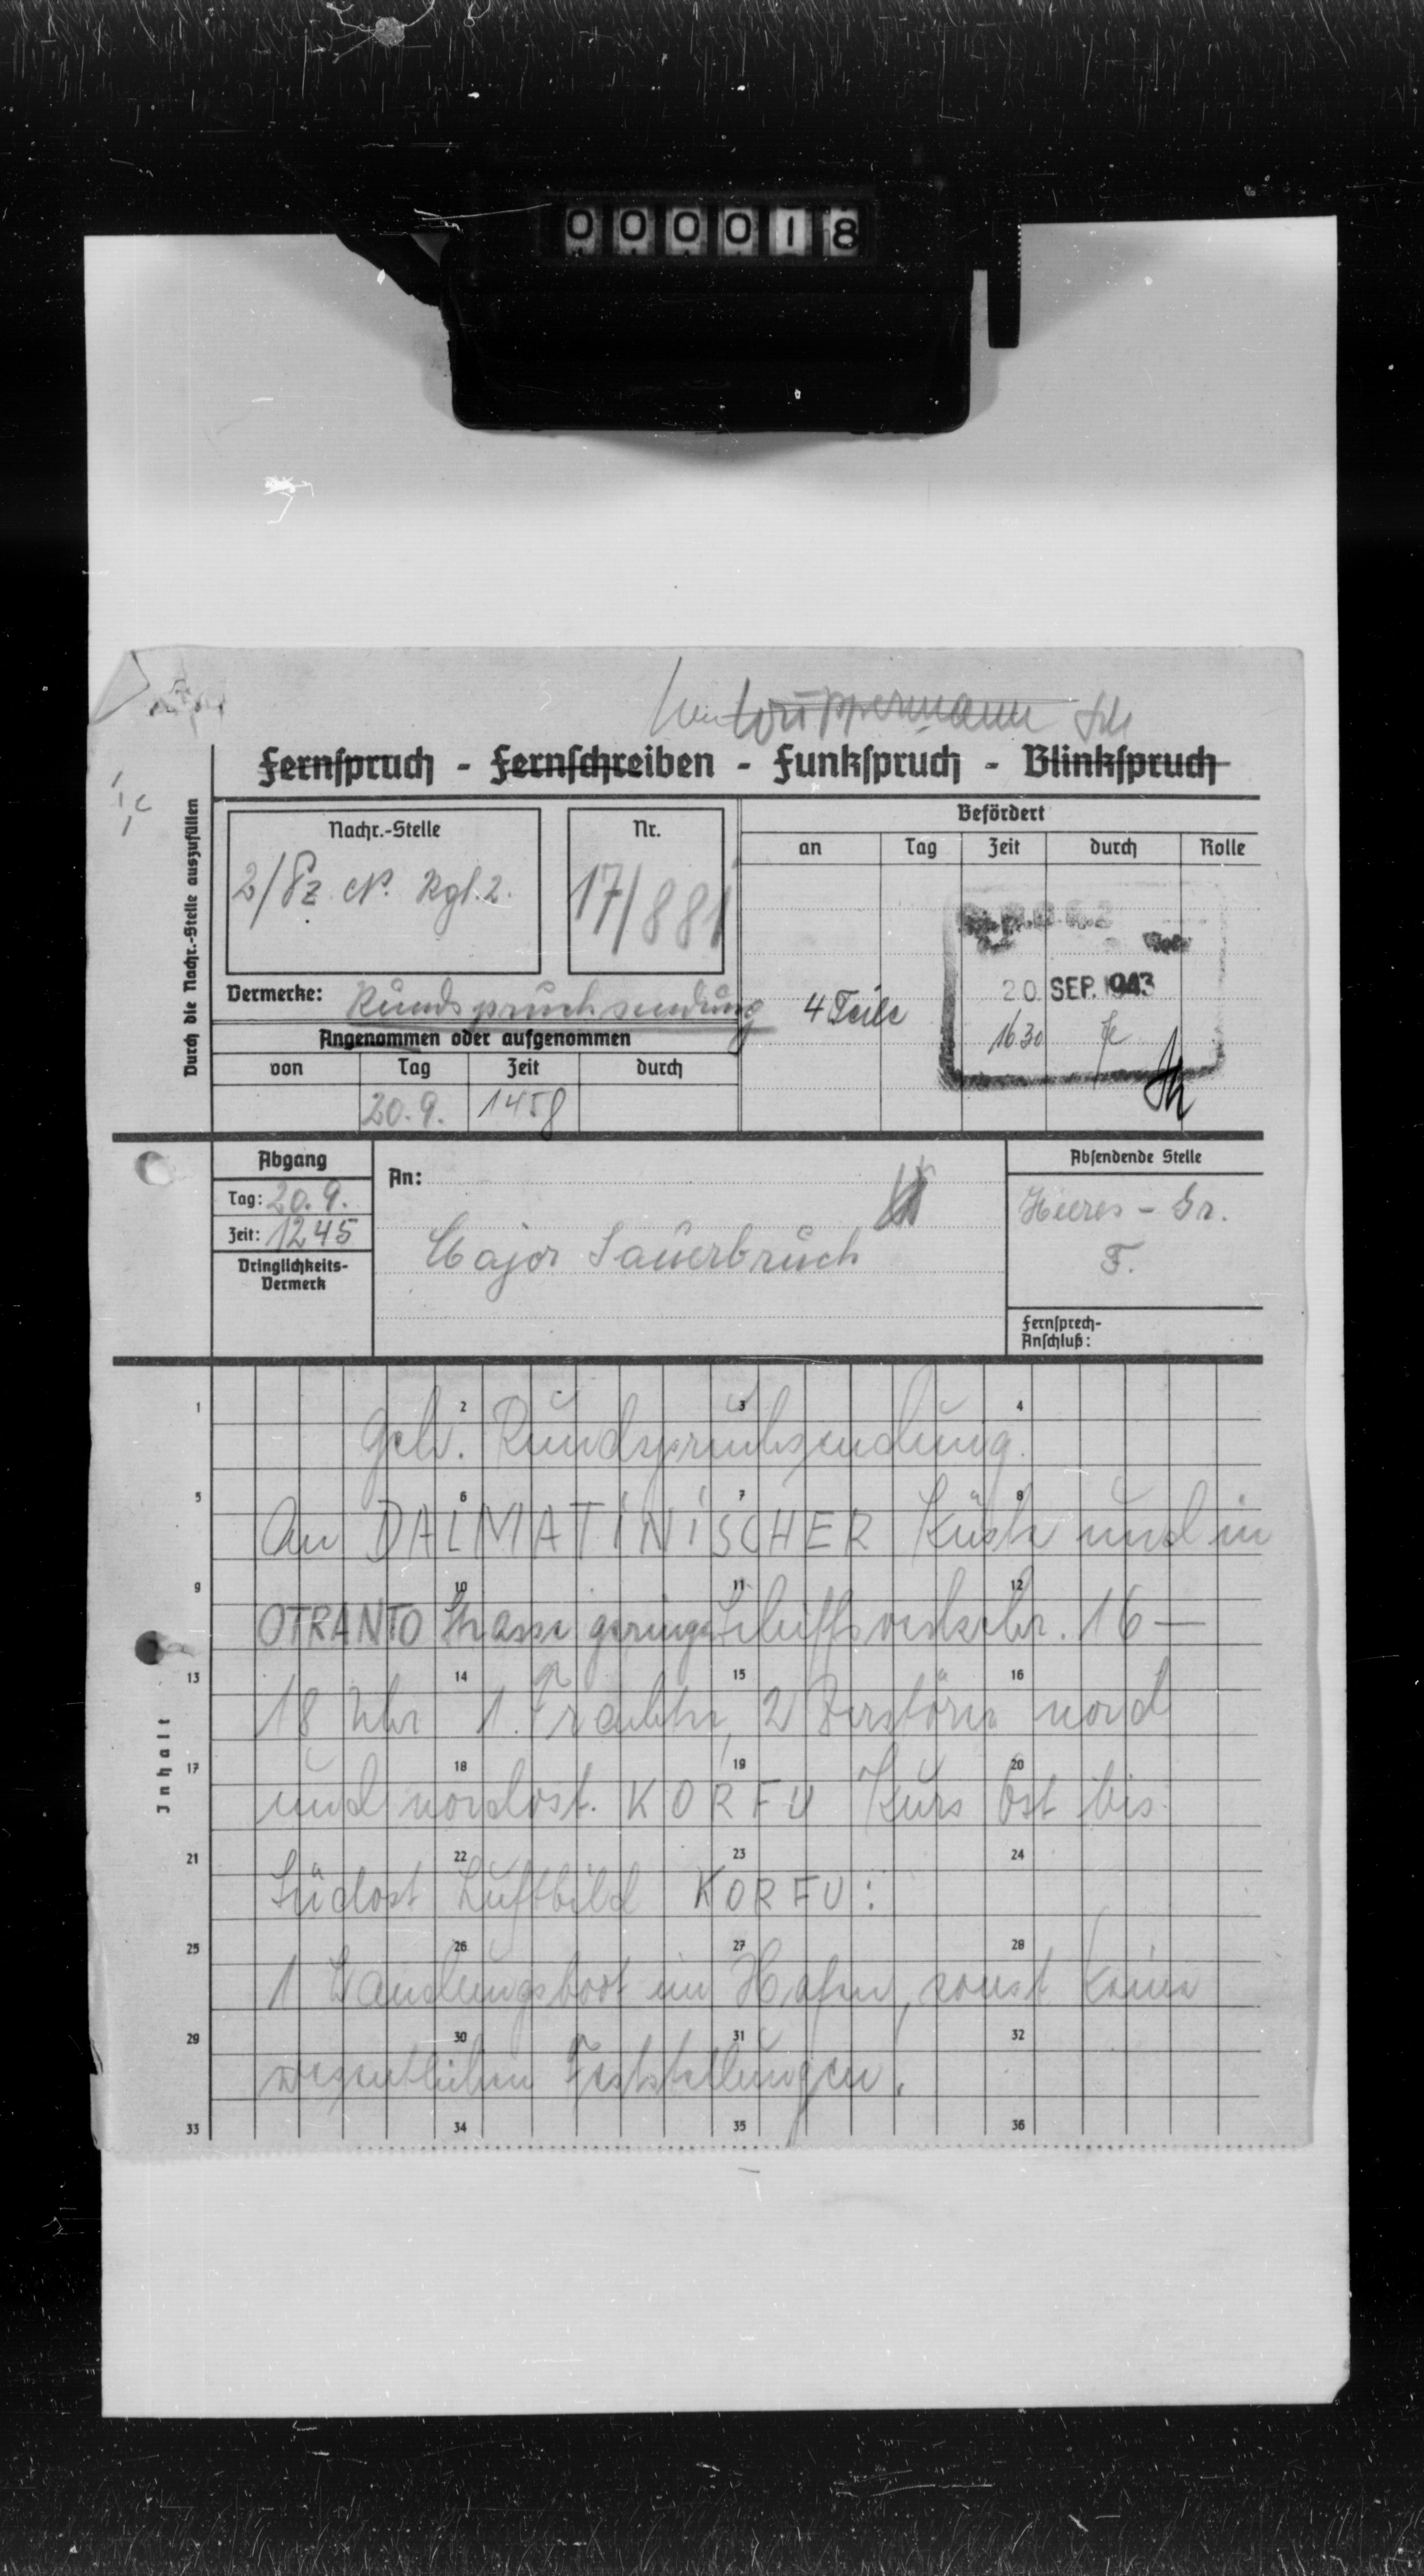 000018
Fernspruch - Fernschreiben - Funkspruch - Blinkspruch
Durch die Nachr.-Stelle auszufüllen
Ic
Nachr.-Stelle
2/Pz. N. Rgt. 2.
Nr.
17/881
Befördert
an Tag Zeit durch Rolle
4 Teile
20. SEP. 1943
1630
Vermerke: Rundspruchsendung
Angenommen oder aufgenommen
von Tag Zeit durch
20.9. 1458
Abgang
Tag: 20.9.
Zeit: 1245
Dringlichkeits-
Vermerk
An:
Major Sauerbruch
Absendende Stelle
Heeres-Gr.
F.
Fernsprech-
Anschluß:
Inhalt
1 2 3 4
Geh. Rundspruchsendung.
5 6 7 8
An DALMATINISCHER Küste und in
9 10 11 12
OTRANTO Strasse geringer Schiffsverkehr. 16 —
13 14 15 16
18 Uhr 1. Frachter, 2 Zerstörer nord
17 18 19 20
und nordost. KORFU Kurs Ost bis
21 22 23 24
Südost Luftbild KORFU:
25 26 27 28
1 Landungsboot im Hafen, sonst keine
29 30 31 32
wesentlichen Feststellungen.
33 34 35 36